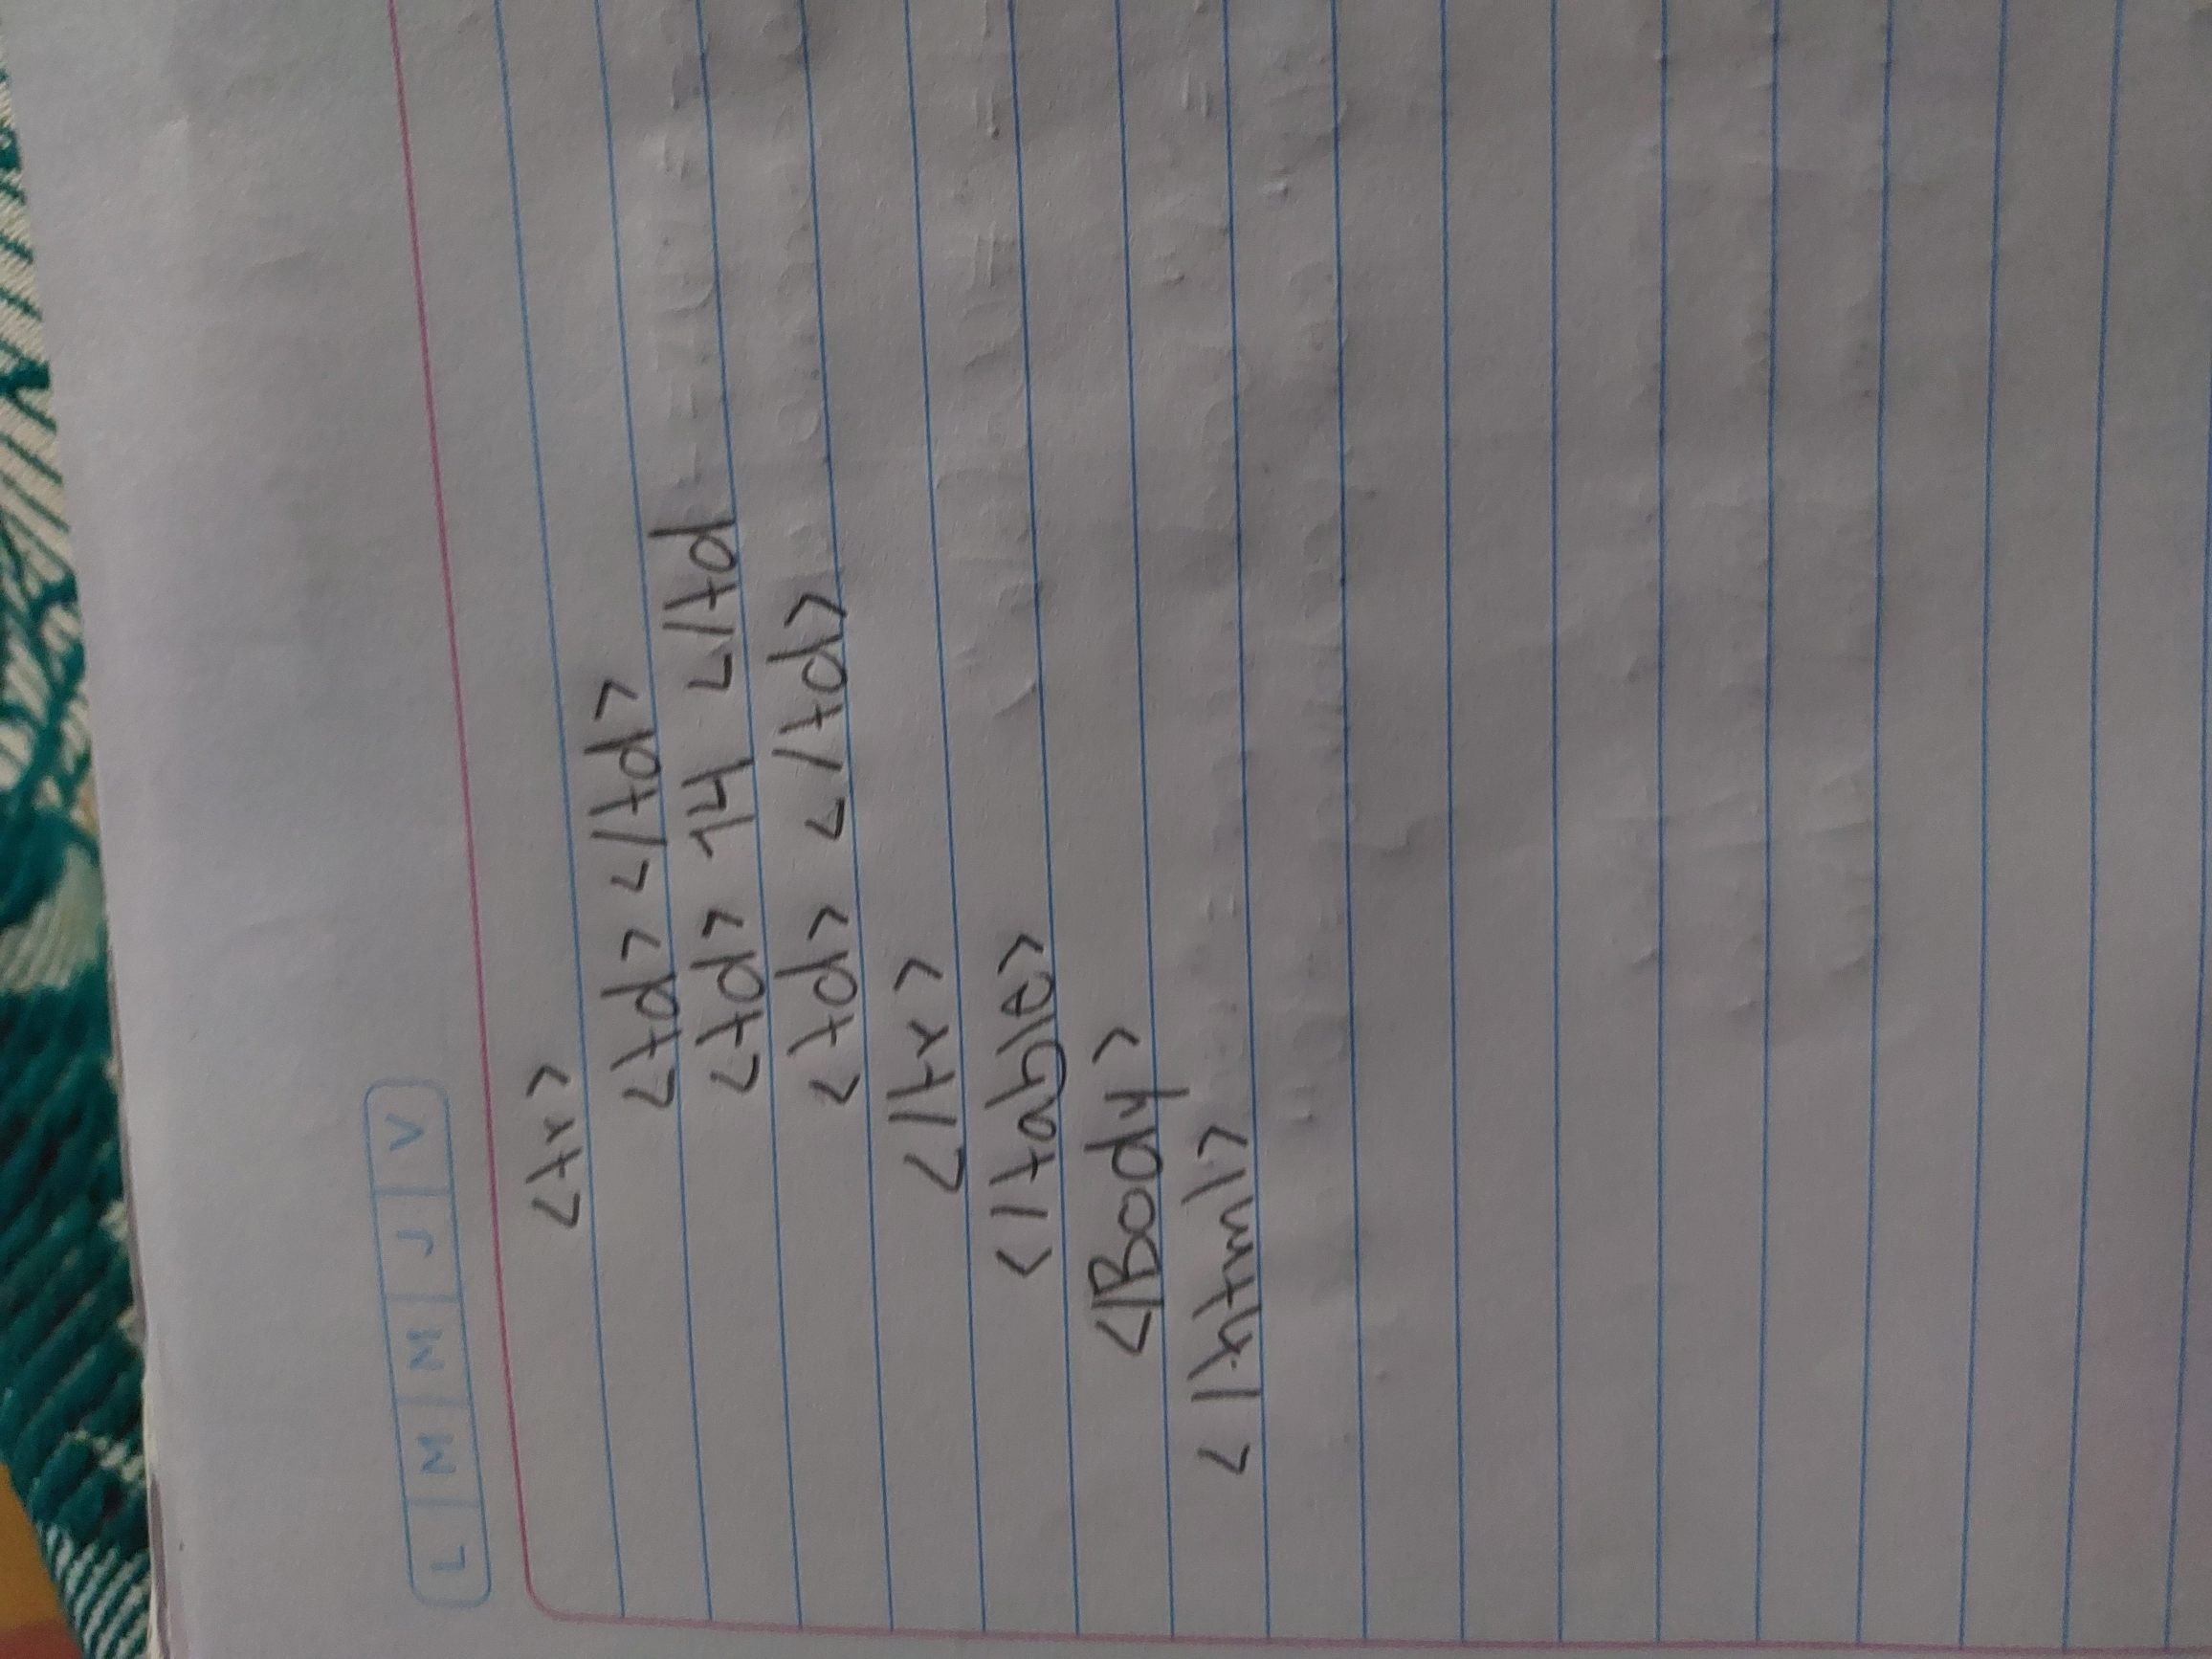 L M M J V
<tr>
<td> </td>
<td> 14 </td
<td> </td>
</tr>
</table>
</Body>
</html>